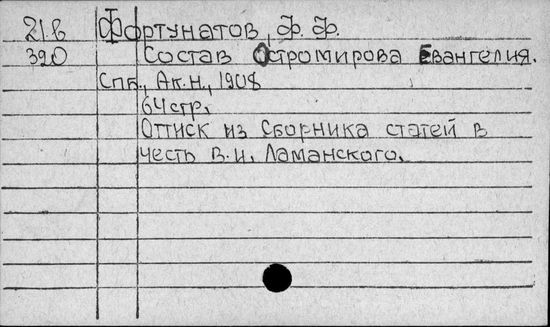 21.в Фортунатов, Ф.Ф.
390 Состав Остромирова Евангелия.
Спб., Ак.н., 1908
64стр.
Оттиск из Сборника статей в
честь В.И. Ламанского.